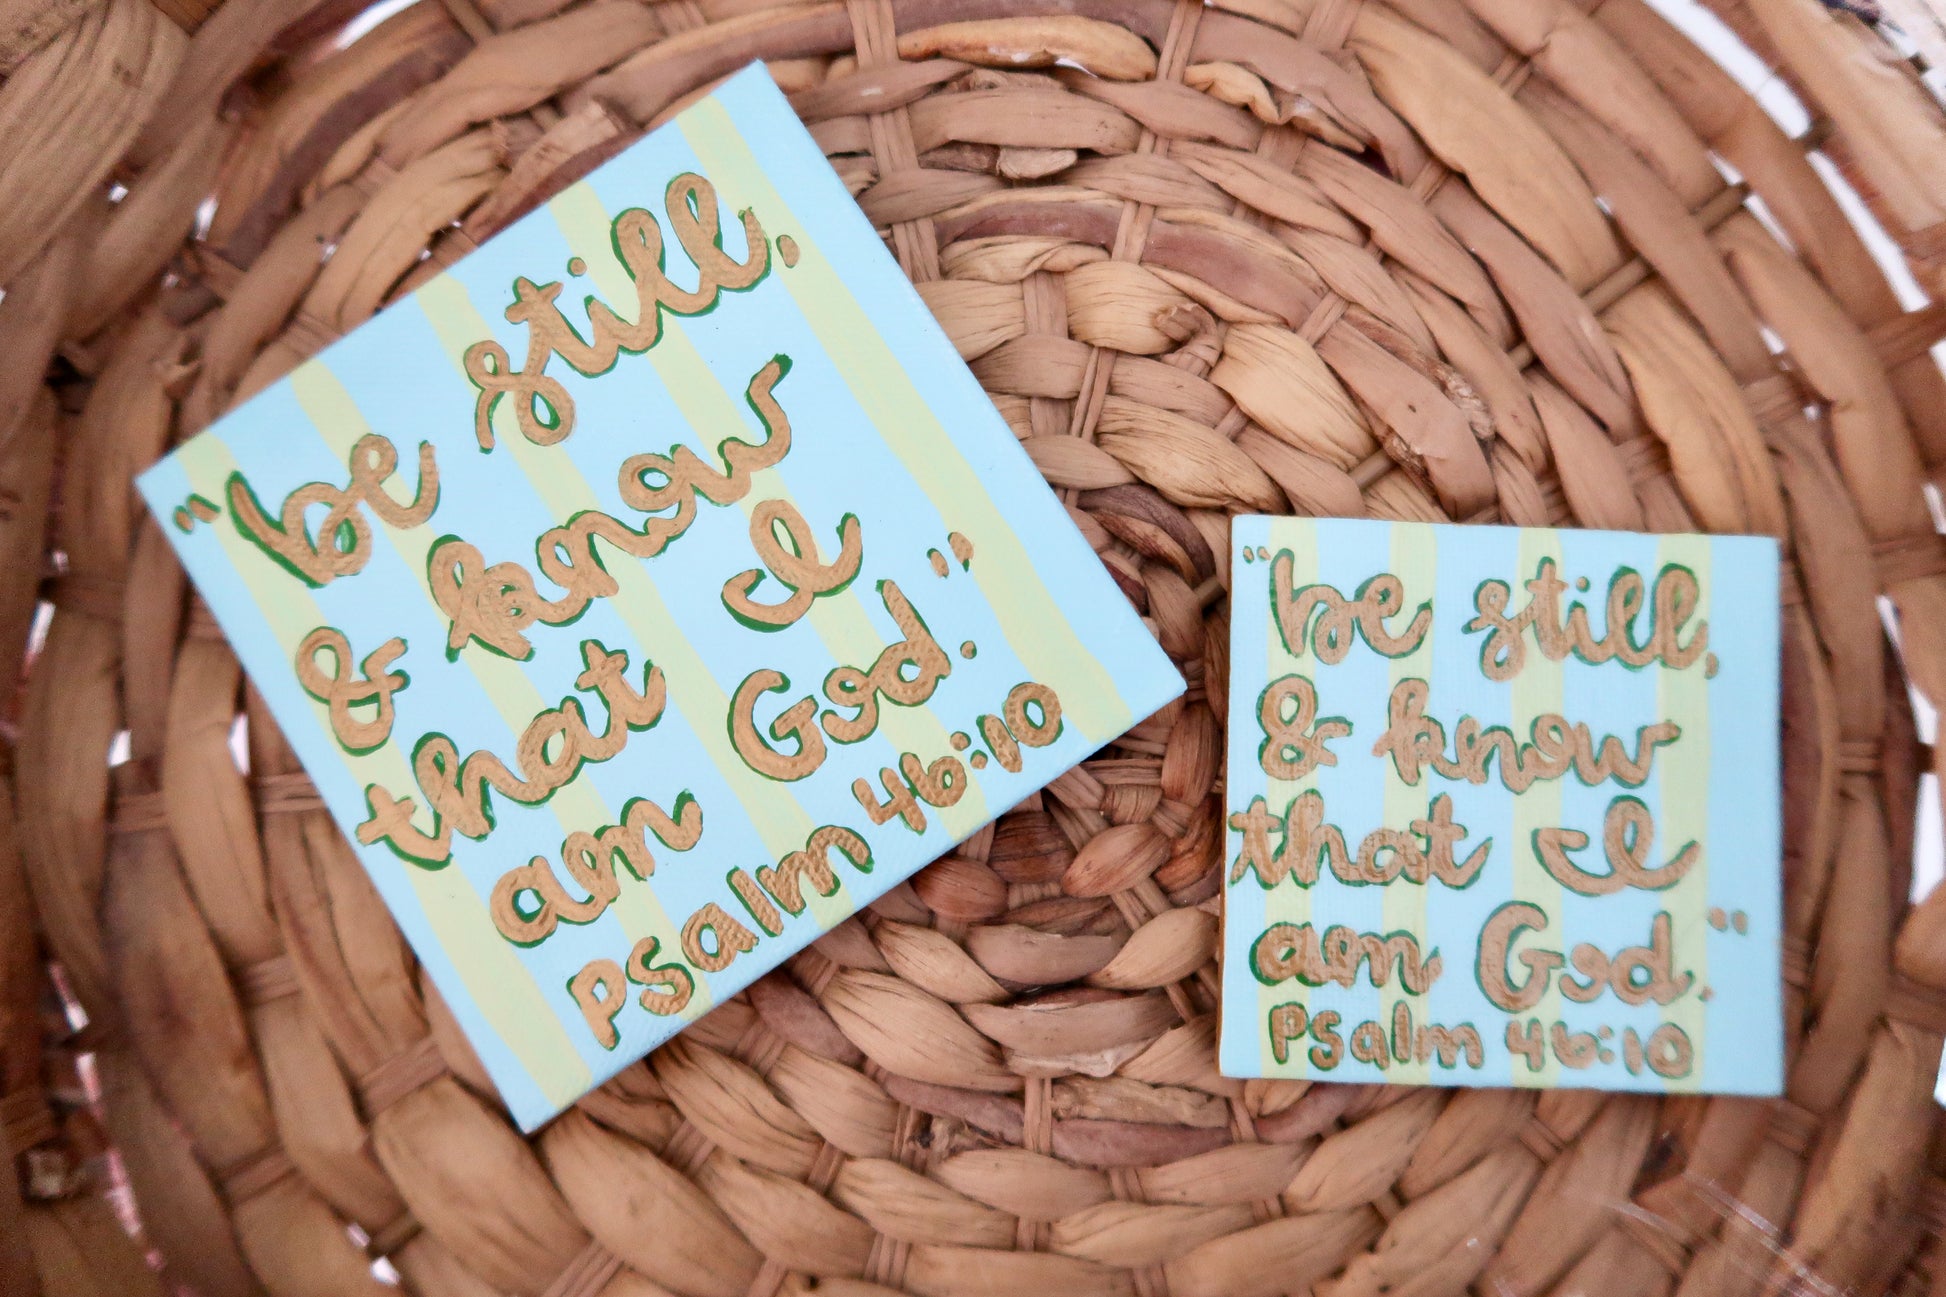 "be still,
& know
that I
am God."
Psalm 46:10
"be still,
& know
that I
am God."
Psalm 46:10